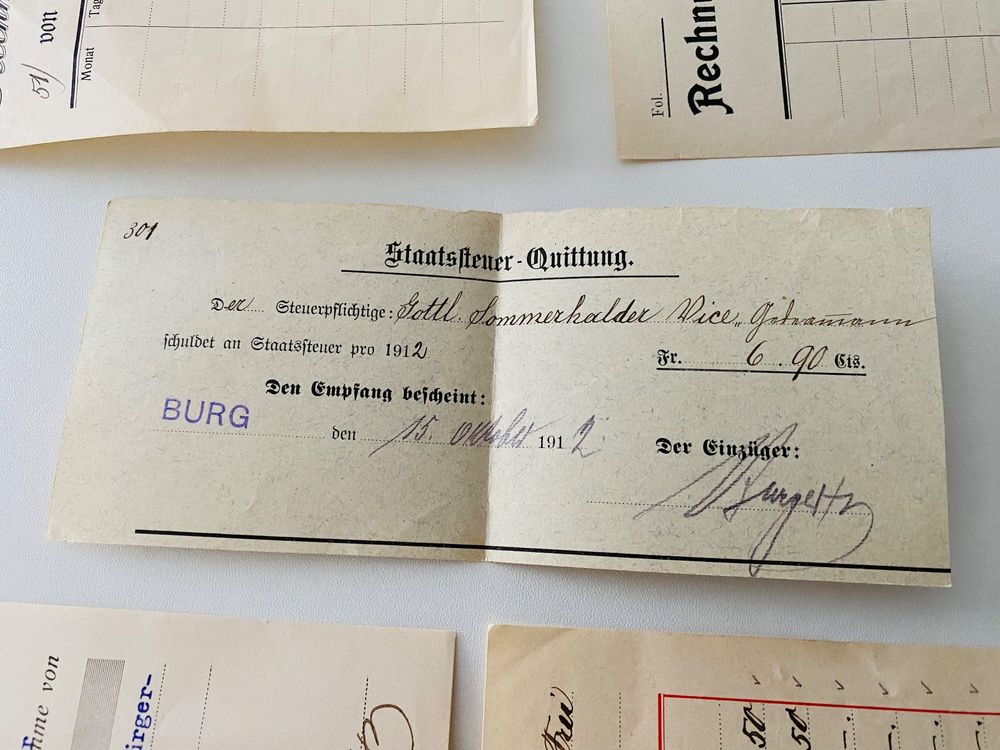 51/ von
Monat
Tag
Fol.
Rechnu
301
Staatssteuer-Quittung.
Der Steuerpflichtige: Gottl. Sommerhalder Vice
schuldet an Staatssteuer pro 1912
Fr. 6. 90 Cts.
Den Empfang bescheint:
BURG den 15. Oktober 1912
Der Einzüger:
hme von
ürger-
Frei
50
50